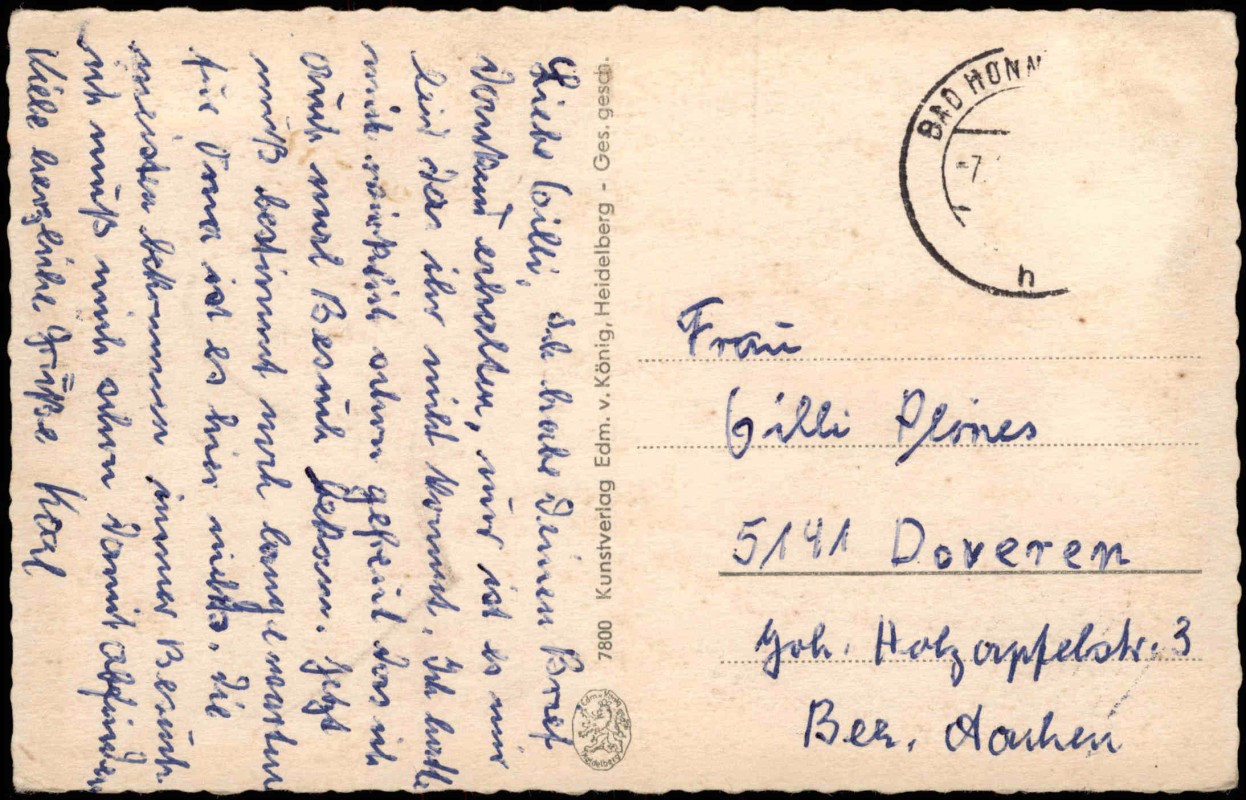 Liebe Cilli, Ich habe deinen Brief
dankend erhalten, nur ist es mir
leid das ihr nicht kommt. Ich hatte
mich wirklich schon gefreut das ich
auch mal Besuch bekomm. Jetzt
muß bestimmt noch lange warten
für Oma ist es hier nichts, die
meisten bekommen immer Besuch.
ich muß mich schon damit abfinden
Viele herzliche Grüße Karl
7800 Kunstverlag Edm. v. König, Heidelberg - Ges. gesch.
Edm. v. König
Heidelberg
BAD HONN
-7.
h
Frau
Cilli Plönes
5141 Doveren
Joh. Holzapfelstr. 3
Bez. Aachen